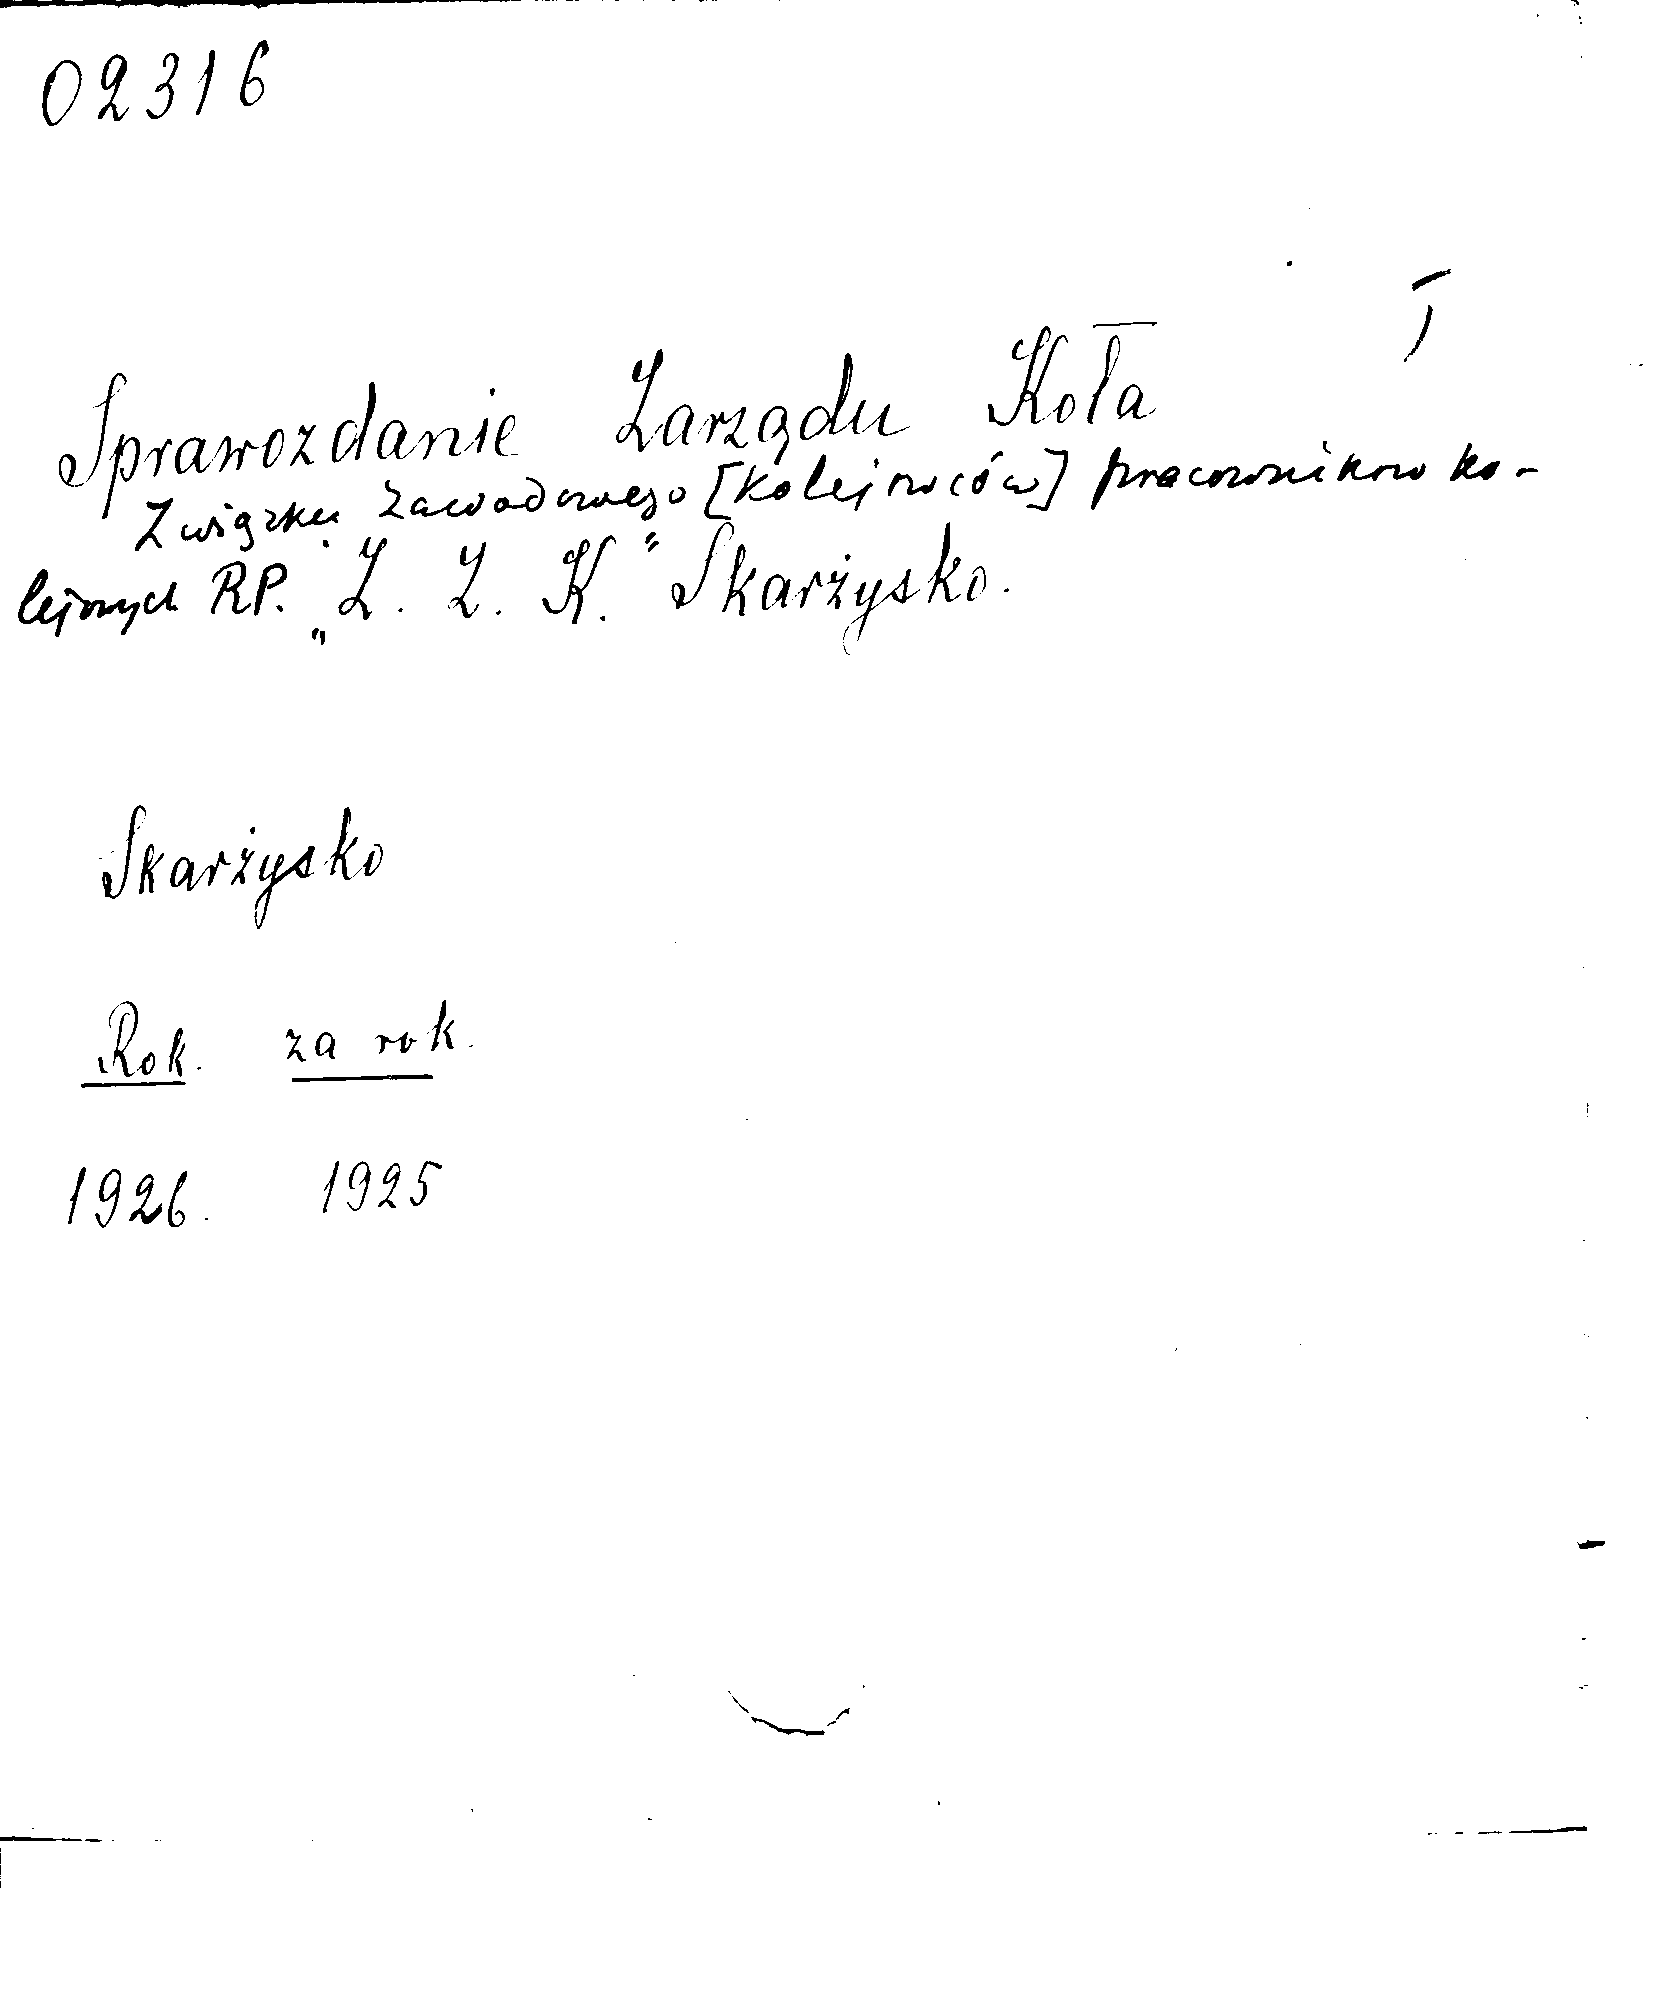 02316
Sprawozdanie Zarządu Koła
Związku zawodowego [kolejowców] pracowników ko-
lejowych RP. „Z. Z. K." Skarżysko.
Skarżysko
Rok. za rok.
1926. 1925